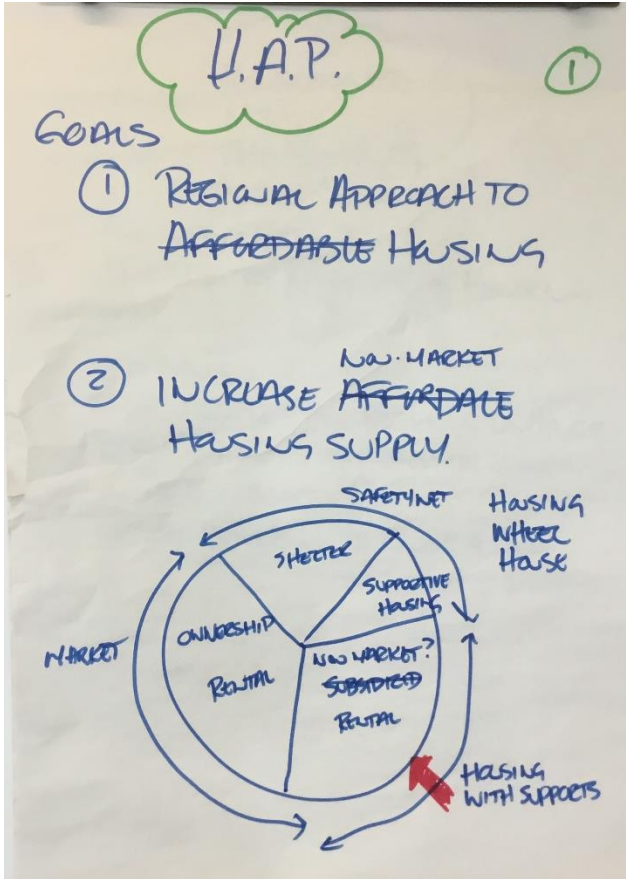 H.A.P.
1
GOALS
1 REGIONAL APPROACH TO
AFFORDABLE HOUSING
NON-MARKET
2 INCREASE AFFORDALE
HOUSING SUPPLY.
SAFETYNET
HOUSING
WHEEL
HOUSE
SHELTER
SUPPORTIVE
HOUSING
OWNERSHIP
RENTAL
MARKET
NON MARKET?
SUBSIDIZED
RENTAL
HOUSING
WITH SUPPORTS